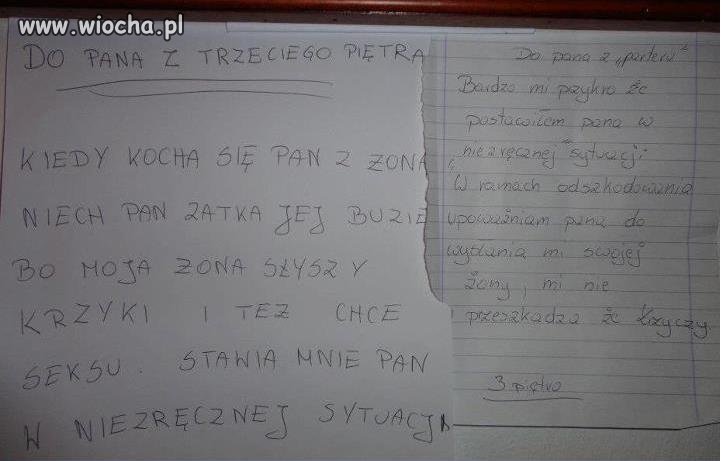 www.wiocha.pl
DO PANA Z TRZECIEGO PIĘTRA
KIEDY KOCHA SIĘ PAN Z ŻONA
NIECH PAN ZATKA JEJ BUZIE
BO MOJA ŻONA SŁYSZY
KRZYKI I TEŻ CHCE
SEKSU. STAWIA MNIE PAN
W NIEZRĘCZNEJ SYTUACJI
Do pana z "parteru"
Bardzo mi przykro że
postawiłem pana w
"niezręcznej sytuacji"
W ramach odszkodowania
upoważniam pana do
wysłania mi swojej
żony, mi nie
przeszkadza że krzyczy
3 piętro